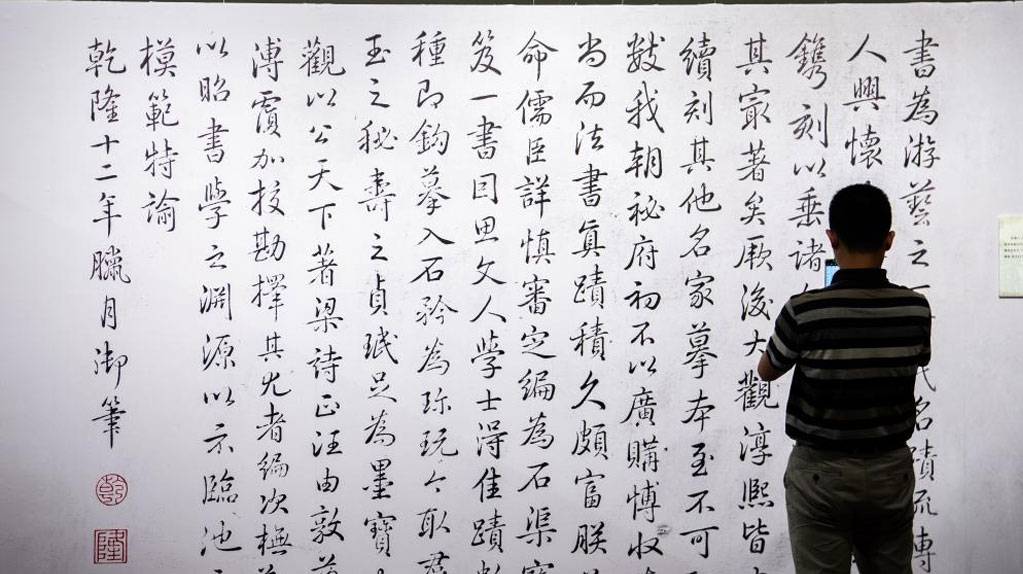 書為游藝之名蹟流傳
人興懷
鐫刻以垂諸
其最著矣厥後大觀淳熙皆
續刻其他名家摹本至不可
數我朝祕府初不以廣購博收
尚而法書真蹟積久頗富朕
命儒臣詳慎審定編為石渠寶
笈一書因思文人學士得佳蹟數
種即鈎摹入石矜為珍玩今取羣
玉之秘壽之貞珉足為墨寶
觀以公天下著梁詩正汪由敦蔣
溥覆加校勘擇其尤者編次橅
以昭書學之淵源以示臨池
模範特諭
乾隆十二年臘月御筆
乾
隆